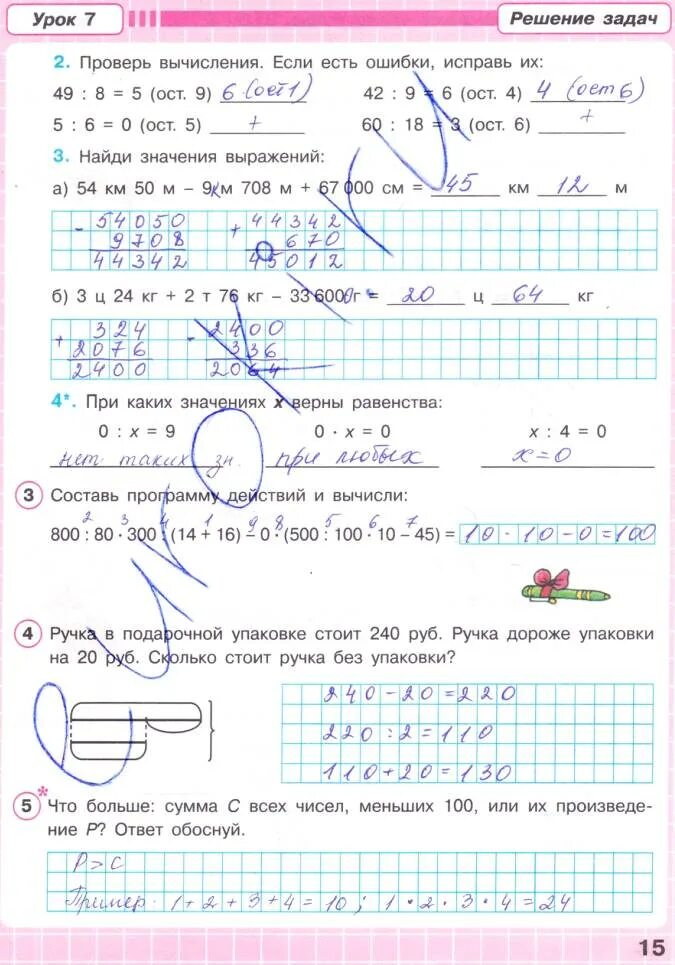 Урок 7
Решение задач
2. Проверь вычисления. Если есть ошибки, исправь их:
49 : 8 = 5 (ост. 9) 6 (ост 1) 42 : 9 = 6 (ост. 4) 4 (ост 6)
5 : 6 = 0 (ост. 5) + 60 : 18 = 3 (ост. 6) +
3. Найди значения выражений:
а) 54 км 50 м – 9 км 708 м + 67 000 см = 45 км 12 м
- 54050 + 44342
9708 670
44342 45012
б) 3 ц 24 кг + 2 т 76 кг – 33 6000 г = 20 ц 64 кг
+ 324 - 2400
2076 336
2400 2064
4*. При каких значениях x верны равенства:
0 : x = 9 0 · x = 0 x : 4 = 0
нет таких зн. при любых x = 0
3 Составь программу действий и вычисли:
2 3 4 1 9 8 5 6 7
800 : 80 · 300 : (14 + 16) – 0 · (500 : 100 · 10 – 45) = 10 · 10 – 0 = 100
4 Ручка в подарочной упаковке стоит 240 руб. Ручка дороже упаковки
на 20 руб. Сколько стоит ручка без упаковки?
240 – 20 = 220
220 : 2 = 110
110 + 20 = 130
5* Что больше: сумма С всех чисел, меньших 100, или их произведе-
ние Р? Ответ обоснуй.
Р > С
Пример 1 + 2 + 3 + 4 = 10 ; 1 · 2 · 3 · 4 = 24
15